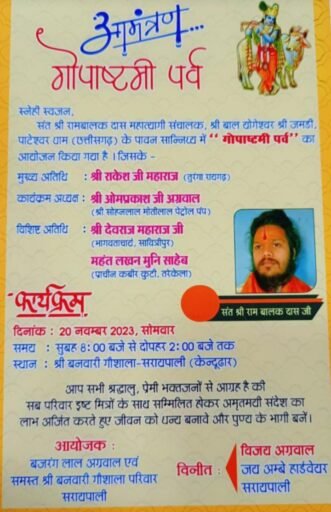 आमंत्रण...
गोपाष्टमी पर्व
स्नेही स्वजन,
संत श्री रामबालक दास महात्यागी संचालक, श्री बाल योगेश्वर श्री जमड़ी,
पाटेश्वर धाम (छत्तीसगढ़) के पावन सान्निध्य में " गोपाष्टमी पर्व" का
आयोजन किया गया है । जिसके -
मुख्य अतिथि : श्री राकेश जी महाराज (तुरंगा रायगढ़)
कार्यक्रम अध्यक्ष : श्री ओमप्रकाश जी अग्रवाल
(श्री सोहनलाल मोतीलाल पेट्रोल पंप)
विशिष्ट अतिथि : श्री देवराज महाराज जी
(भागवताचार्य, सावित्रीपुर)
महंत लखन मुनि साहेब
(प्राचीन कबीर कुटी, तरेकेला)
संत श्री राम बालक दास जी
कार्यक्रम
दिनांक : 20 नवम्बर 2023, सोमवार
समय : सुबह 8:00 बजे से दोपहर 2:00 बजे तक
स्थान : श्री बनवारी गौशाला-सरायपाली (केन्दूढार)
आप सभी श्रद्धालु, प्रेमी भक्तजनों से आग्रह है की
सब परिवार इष्ट मित्रों के साथ सम्मिलित होकर अमृतमयी संदेश का
लाभ अर्जित करते हुए जीवन को धन्य बनावे और पुण्य के भागी बनें।
आयोजक :
बजरंग लाल अग्रवाल एवं
समस्त श्री बनवारी गौशाला परिवार
सरायपाली
विनीत :
विजय अग्रवाल
जय अम्बे हार्डवेयर
सरायपाली